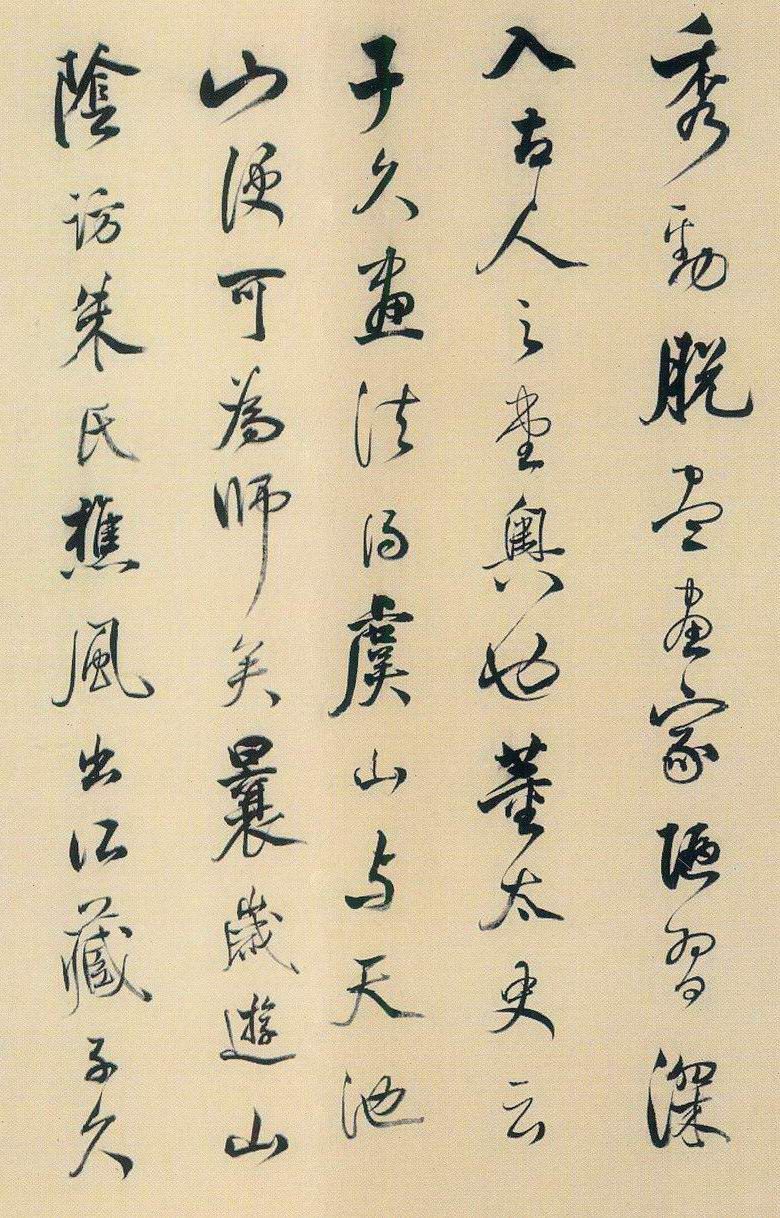 秀勁脫盡畫家陋習深
入古人之堂奧也董太史云
子久畫法得虞山与天池
山便可為師矣曩歲遊山
陰訪朱氏樵風出所藏子久